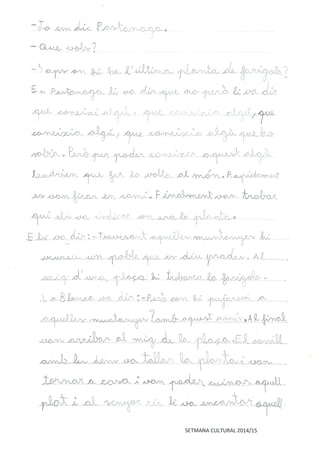 -Jo em dic Pastanaga.
-Que vols?
-Saps on hi ha l'última planta de farigola?
En Pastanaga li va dir que no però li va dir
que coneixi algú, que coneixia algú, que
coneixia algú, que coneixia algú que ho
sabia. Però per poder coneixer aquest algú
haurien que fer la volta al món. Rapidament
es van ficar en camí. Finalment van trobar
qui els va indicar on era la planta.
Els va dir:-Travessant aquelles muntanyes hi
un poble que es diu prades. Al
mig d'una plaça hi trobareu la farigola.
La Blanca va dir:-Però com hi pujarem a
aquelles muntanyes? amb aquest Al final
van arribar al mig de la plaça. El conill
amb les dens va tallar la planta i van
tornar a casa i van poder cuinar aquell
plat i al senyor ric li va encantar aquell
SETMANA CULTURAL 2014/15